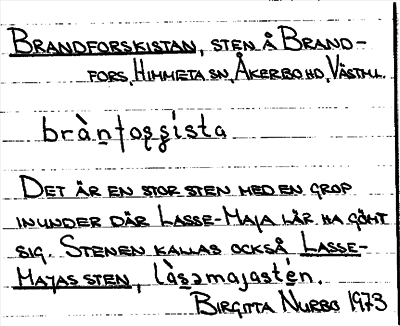 BRANDFORSKISTAN, STEN Å BRAND-
FORS, HIMMETA SN, ÅKERBO HD, VÄSTML.
DET ÄR EN STOR STEN MED EN GROP
INUNDER DÄR LASSE-MAJA LÄR HA GÖMT
SIG. STENEN KALLAS OCKSÅ LASSE-
MAJAS STEN, làsəmajastén.
BIRGITTA NURBO 1973